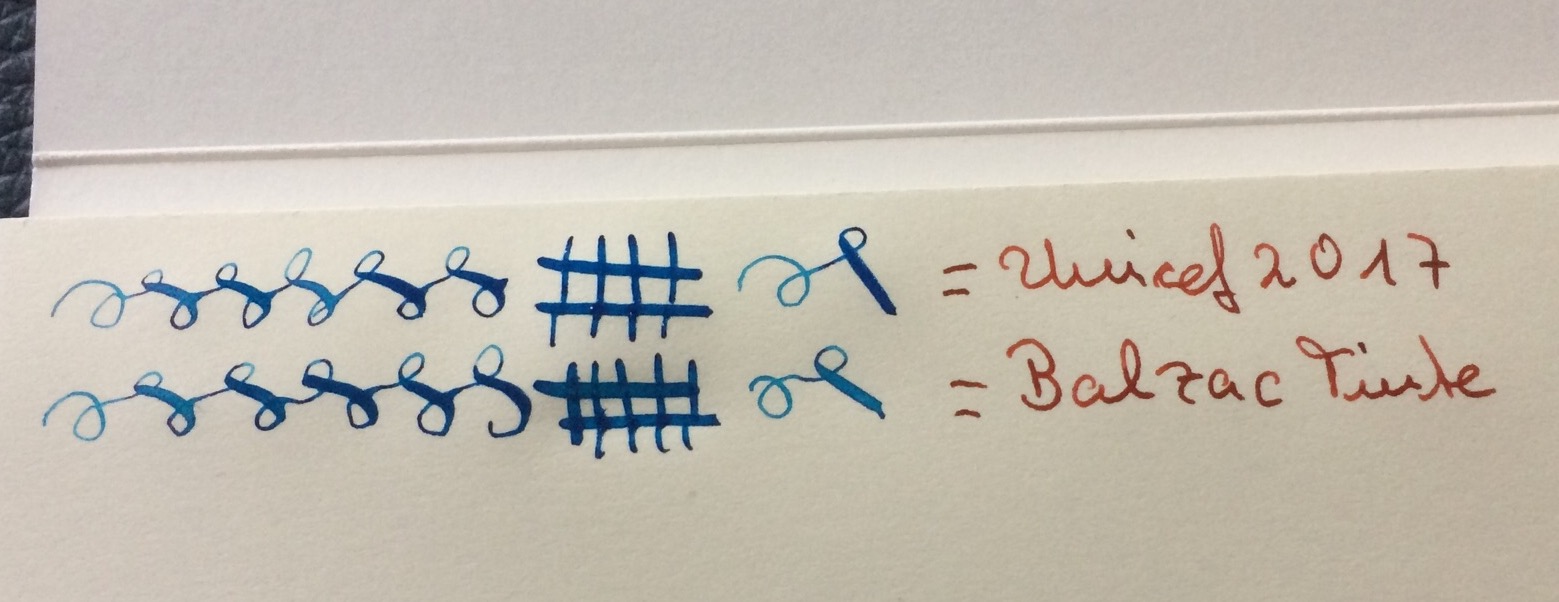 = Unicef 2017
= Balzac Tinte